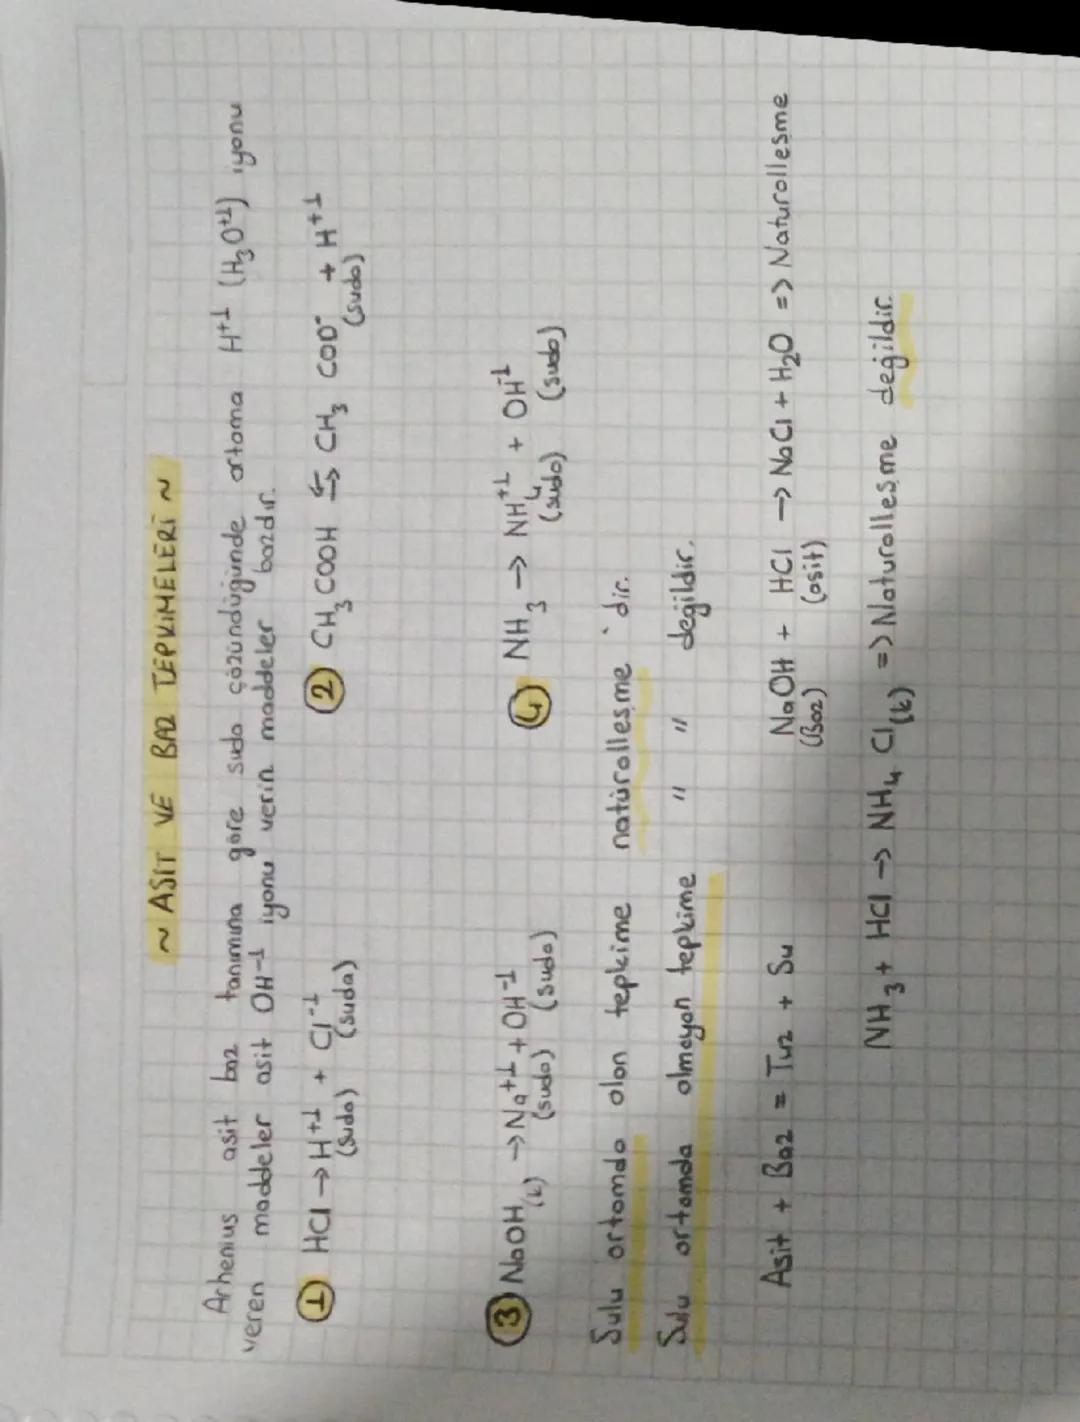 ~ ASİT VE BAZ TEPKİMELERİ ~
Arhenius asit baz tanımına göre suda çözündüğünde ortama H⁺¹ (H₃O⁺¹) iyonu
veren maddeler asit OH⁻¹ iyonu verin maddeler bazdır.
① HCl → H⁺¹ + Cl⁻¹ ② CH₃COOH ⇆ CH₃COO⁻ + H⁺¹
(suda) (suda) (suda)
③ NaOH(k) → Na⁺¹ + OH⁻¹ ④ NH₃ → NH₄⁺¹ + OH⁻¹
(suda) (suda) (suda) (suda)
Sulu ortamda olan tepkime natürolleşme 'dir.
Sulu ortamda olmayan tepkime " " değildir.
Asit + Baz = Tuz + Su NaOH + HCl → NaCl + H₂O => Naturolleşme
(Baz) (asit)
NH₃ + HCl → NH₄Cl(k) => Naturolleşme değildir.